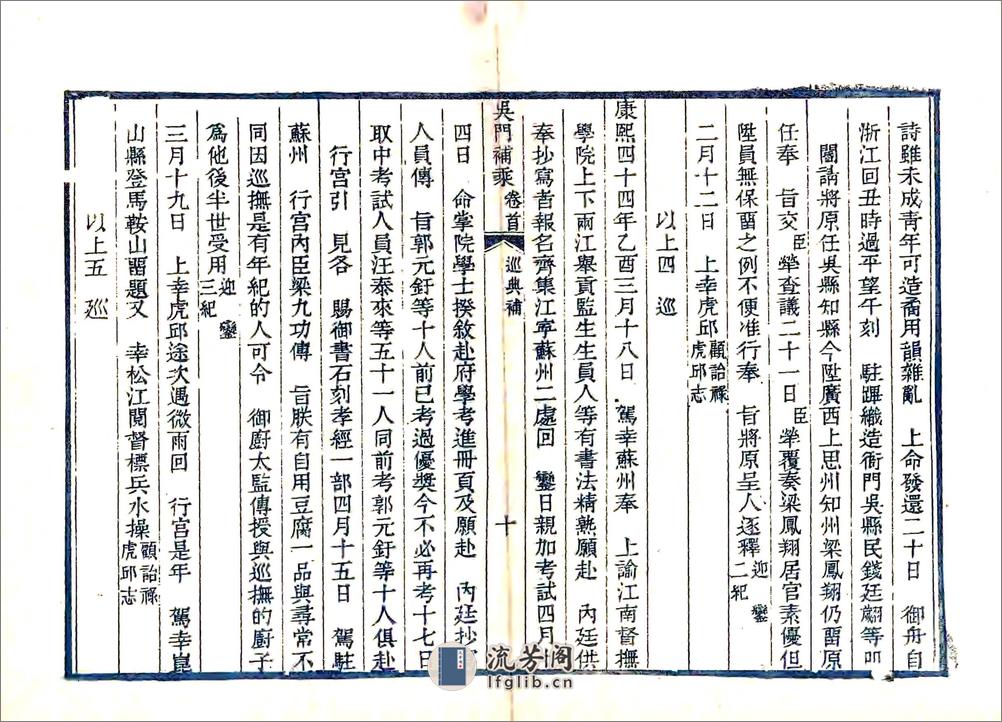 詩雖未成青年可造喬用韻雜亂　上命發還二十日　御舟自
浙江回丑時過平望午刻　駐蹕織造衙門吳縣民錢廷勷等叩
閽請將原任吳縣知縣今陞廣西上思州知州梁鳳翔仍畱原
任奉　旨交臣犖查議二十一日臣犖覆奏梁鳳翔居官素優但
陞員無保畱之例不便准行奉　旨將原呈人逐釋迎鑾二紀
二月十二日　上幸虎邱顧詒祿虎邱志
以上四　巡
康熙四十四年乙酉三月十八日　駕幸蘇州奉　上諭江南督撫
學院上下兩江舉貢監生生員人等有書法精熟願赴　內廷供
奉抄寫者報名齊集江寧蘇州二處回　鑾日親加考試四月
吳門補乘　卷首　巡典補　十
四日　命掌院學士揆敘赴府學考進冊頁及願赴　內廷抄
人員傳　旨郭元釪等十人前已考過優獎今不必再考十七日
取中考試人員汪泰來等五十一人同前考郭元釪等十人俱赴
行宮引　見各　賜御書石刻孝經一部四月十五日　駕駐
蘇州　行宮內臣梁九功傳　旨朕有自用豆腐一品與尋常不
同因巡撫是有年紀的人可令　御廚太監傳授與巡撫的廚子
爲他後半世受用迎鑾三紀
三月十九日　上幸虎邱途次遇微雨回　行宮是年　駕幸崑
山縣登馬鞍山畱題又　幸松江閱督標兵水操顧詒祿虎邱志
以上五　巡
流芳閣
lfglib.cn